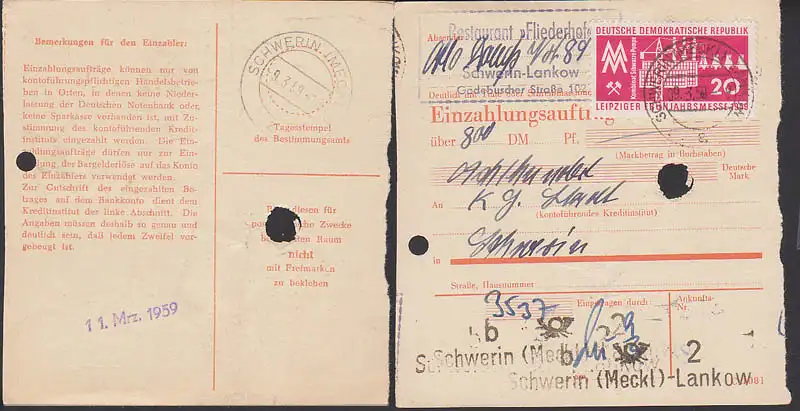 Bemerkungen für den Einzahler:
Einzahlungsaufträge können nur von
kontoführungspflichtigen Handelsbetrie-
ben in Orten, in denen keine Nieder-
lassung der Deutschen Notenbank oder
keine Sparkasse vorhanden ist, mit Zu-
stimmung des kontoführenden Kredit-
instituts eingezahlt werden. Die Ein-
zahlungsaufträge dürfen nur zur Ein-
zahlung der Bargelderlöse auf das Konto
des Einzahlers verwendet werden.
Zur Gutschrift des eingezahlten Be-
trages auf dem Bankkonto dient dem
Kreditinstitut der linke Abschnitt. Die
Angaben müssen deshalb so genau und
deutlich sein, daß jedem Zweifel vor-
gebeugt ist.
11. Mrz. 1959
SCHWERIN (MECKL)
9.3.59
Tagesstempel
des Bestimmungsamts
diesen für
Zwecke
Raum
nicht
mit Freimarken
zu bekleben
Absender
Restaurant „Fliederhof"
89
Schwerin-Lankow
Gadebuscher Straße 102
DEUTSCHE DEMOKRATISCHE REPUBLIK
20
LEIPZIGER FRÜHJAHRSMESSE 1959
Einzahlungsauftrag
über 800 DM Pf.
(Markbetrag in Buchstaben)
Deutsche
Mark
Achthundert
An K. G. Stadt
(kontoführendes Kreditinstitut)
in Schwerin
Straße, Hausnummer
3537
Eingetragen durch:
Ankunfts-
Nr.
b
Schwerin (Meckl)
b 2
Schwerin (Meckl)-Lankow